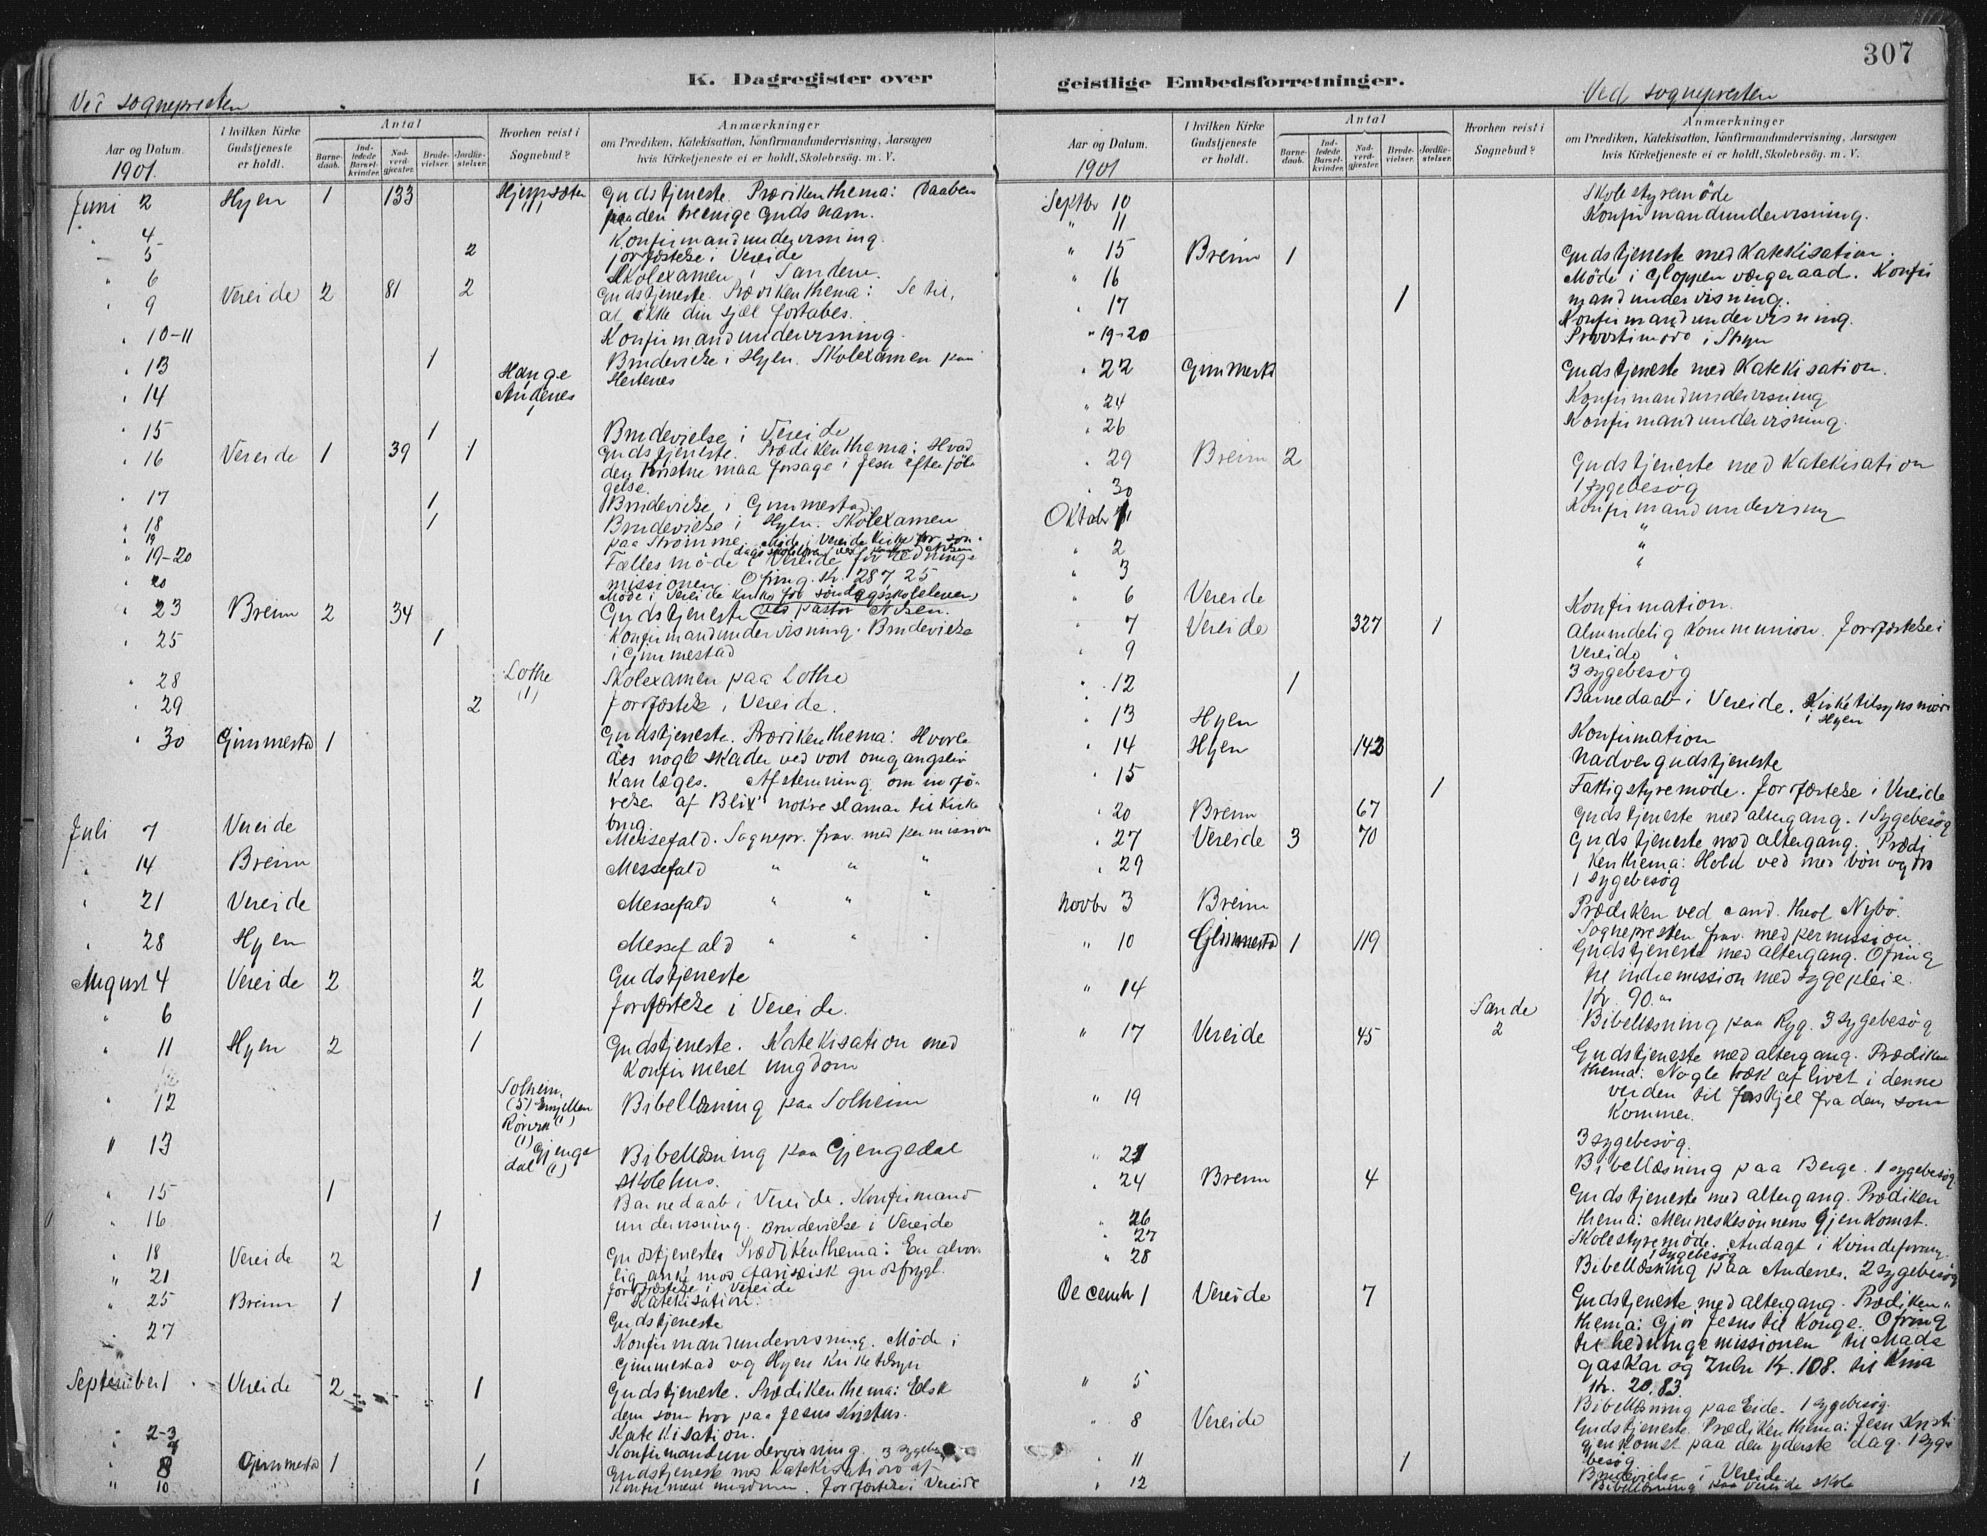 307
K. Dagregister over
geistlige Embedsforretninger.
Ved sognepresten
Ved sognepresten
Aar og Datum.
1901.
I hvilken Kirke Gudstjeneste er holdt.
Antal
Barnedaab.
Indledede Barselkvinder.
Nadverdgjester.
Brudevielser.
Jordfæstelser.
Hvorhen reist i Sognebud?
Anmærkninger
om Prædiken, Katekisation, Konfirmandundervisning, Aarsagen
hvis Kirketjeneste ei er holdt, Skolebesøg m. V.
Juni 2 Hyen 1 133 Gudstjeneste. Prædikenthema: Daaben
paa den treenige Guds navn.
" 4 Konfirmandundervisning.
" 5 2 Jordfæstelse i Vereide
" 6 Skolexamen i Sandene.
" 9 Vereide 2 81 2 Gudstjeneste. Prædikenthema: Se til,
at ikke din sjæl fortabes.
" 10-11 Konfirmandundervisning.
" 13 1 Brudevielse i Hyen. Skolexamen paa
Hestenes
" 14 Hauge
Andenes
1
" 15 1 Brudevielse i Vereide
" 16 Vereide 1 39 1 Gudstjeneste. Prædikenthema: Hvad
den kristne maa forsage i Jesu efterföl-
gelse.
" 17 1 Brudevielse i Gimmestad.
" 18 1 Brudevielse i Hyen. Skolexamen
" 19 paa Strømme. Möde i Vereide kirke for søn-
" 19-20 Fælles möde i Vereide for hednings-
missionen. Ofring. Kr. 287 25
" 20 Möde i Vereide kirke for søndagsskolelever
" 23 Breim 2 34 Gudstjeneste ved pastor Nilsen.
" 25 1 Konfirmandundervisning. Brudevielse
i Gimmestad
" 28 Lothe
(1) Skolexamen paa Lothe
" 29 2 Jordfæstelse i Vereide.
" 30 Gimmestad 1 Gudstjeneste. Prædikenthema: Hvorle-
des nogle skader ved vort omgangsliv
kan læges. Afstemning om indfö-
relse af Blix' norske salmar til kirke-
brug.
Juli 7 Vereide Messefald. Sognepr. frav. med permission
" 14 Breim Messefald " " "
" 21 Vereide Messefald " " "
" 28 Hyen Messefald " " "
August 4 Vereide 2 2 Gudstjeneste
" 6 1 Jordfæstelse i Vereide.
" 11 Hyen 2 1 Gudstjeneste. Katekisation med
konfirmeret ungdom
" 12 Solheim
(5) Bibellæsning paa Solheim
" 13 Gjenge-
dal (1) Bibellæsning paa Gjengedal
skolehus.
" 15 1 Barnedaab i Vereide. Konfirmand
" 16 1 undervisning. Brudevielse i Vereide
" 18 Vereide 2 Gudstjeneste. Prædikenthema: En alvor-
lig ank mod farisæisk gudsfrygt.
" 21 1 Jordfæstelse i Vereide
Katekisation.
" 25 Breim 1 Gudstjeneste
" 27 Konfirmandundervisning. Möde i
Gimmestad og Hyen kirketilsyn
September 1 Vereide 2 1 Gudstjeneste. Prædikenthema: Elsk
dem som tror paa Jesus Kristus.
Katekisation.
" 2-3 Konfirmandundervisning. 3 sygebesøg
" 8 Gimmestad 1 1 Gudstjeneste med Katekisation af
" 10 1 konfirmeret ungdom. Jordfæstelse i Vereide
Aar og Datum.
1901
I hvilken Kirke Gudstjeneste er holdt.
Antal
Barnedaab.
Indledede Barselkvinder.
Nadverdgjester.
Brudevielser.
Jordfæstelser.
Hvorhen reist i Sognebud?
Anmærkninger
om Prædiken, Katekisation, Konfirmandundervisning, Aarsagen
hvis Kirketjeneste ei er holdt, Skolebesøg m. V.
Septbr 10 Skolestyremöde
" 11 Konfirmandundervisning.
" 15 Breim 1 Gudstjeneste med Katekisation.
" 16 Möde i Gloppen værgeraad. Konfir
mandundervisning.
" 17 1 Konfirmandundervisning.
" 19-20 Provstimöde i Stryn
" 22 Gimmestad Gudstjeneste med Katekisation.
" 24 Konfirmandundervisning
" 26 Konfirmandundervisning.
" 29 Breim 2 Gudstjeneste med Katekisation
" 30 1 sygebesøg
Oktobr 1 Konfirmandundervisning
" 2 "
" 3 "
" 6 Vereide Konfirmation.
" 7 Vereide 327 1 Almindelig Kommunion. Jordfæstelse i
Vereide
" 9 3 sygebesøg
" 12 1 Barnedaab i Vereide. Kirketilsynsmöde
i Hyen
" 13 Hyen Konfirmation
" 14 Hyen 142 Nadvergudstjeneste
" 15 1 Fattigstyremöde. Jordfæstelse i Vereide
" 20 Breim 67 Gudstjeneste med altergang. 1 Sygebesøg
" 27 Vereide 3 70 Gudstjeneste med altergang. Prædi
kenthema: Hold ved med bön og tro
" 29 1 sygebesøg
Novbr 3 Breim Prædiken ved cand. theol Nybö.
Sognepresten frav. med permission.
" 10 Gimmestad 1 119 Gudstjeneste med altergang. Ofring
til indremission med sygepleie.
Kr. 90.00
" 14 Sande
2 Bibellæsning paa Ryg. 3 sygebesøg
" 17 Vereide 45 Gudstjeneste med altergang. Prædiken
thema: Nogle træk af livet i denne
verden til forskjel fra den, som
kommer.
" 19 3 sygebesøg.
" 21 Bibellæsning paa Berge. 1 sygebesøg
" 24 Breim 4 Gudstjeneste med altergang. Prædiken
thema: Menneskesönnens Gjenkomst.
" 26 Skolestyremöde. Andagt i Kvindeforening.
" 27 1 sygebesøg
" 28 Bibellæsning paa Andenes. 2 sygebesøg
December 1 Vereide 7 Gudstjeneste med altergang. Prædiken-
thema: Gjør Jesus til Konge. Ofring
til hedningemissionen til Mada
gaskar og Zulu Kr. 108. til Kina
Kr. 20.83.
" 5 Bibellæsning paa Eide. 1 sygebesøg.
" 8 Vereide Gudstjeneste. Prædikenthema: Jesu Kristi
gjenkomst paa den yderste dag. 1 syge
besøg
" 11 1 Brudevielse i Vereide
" 12 Bibellæsning paa Vereide skole